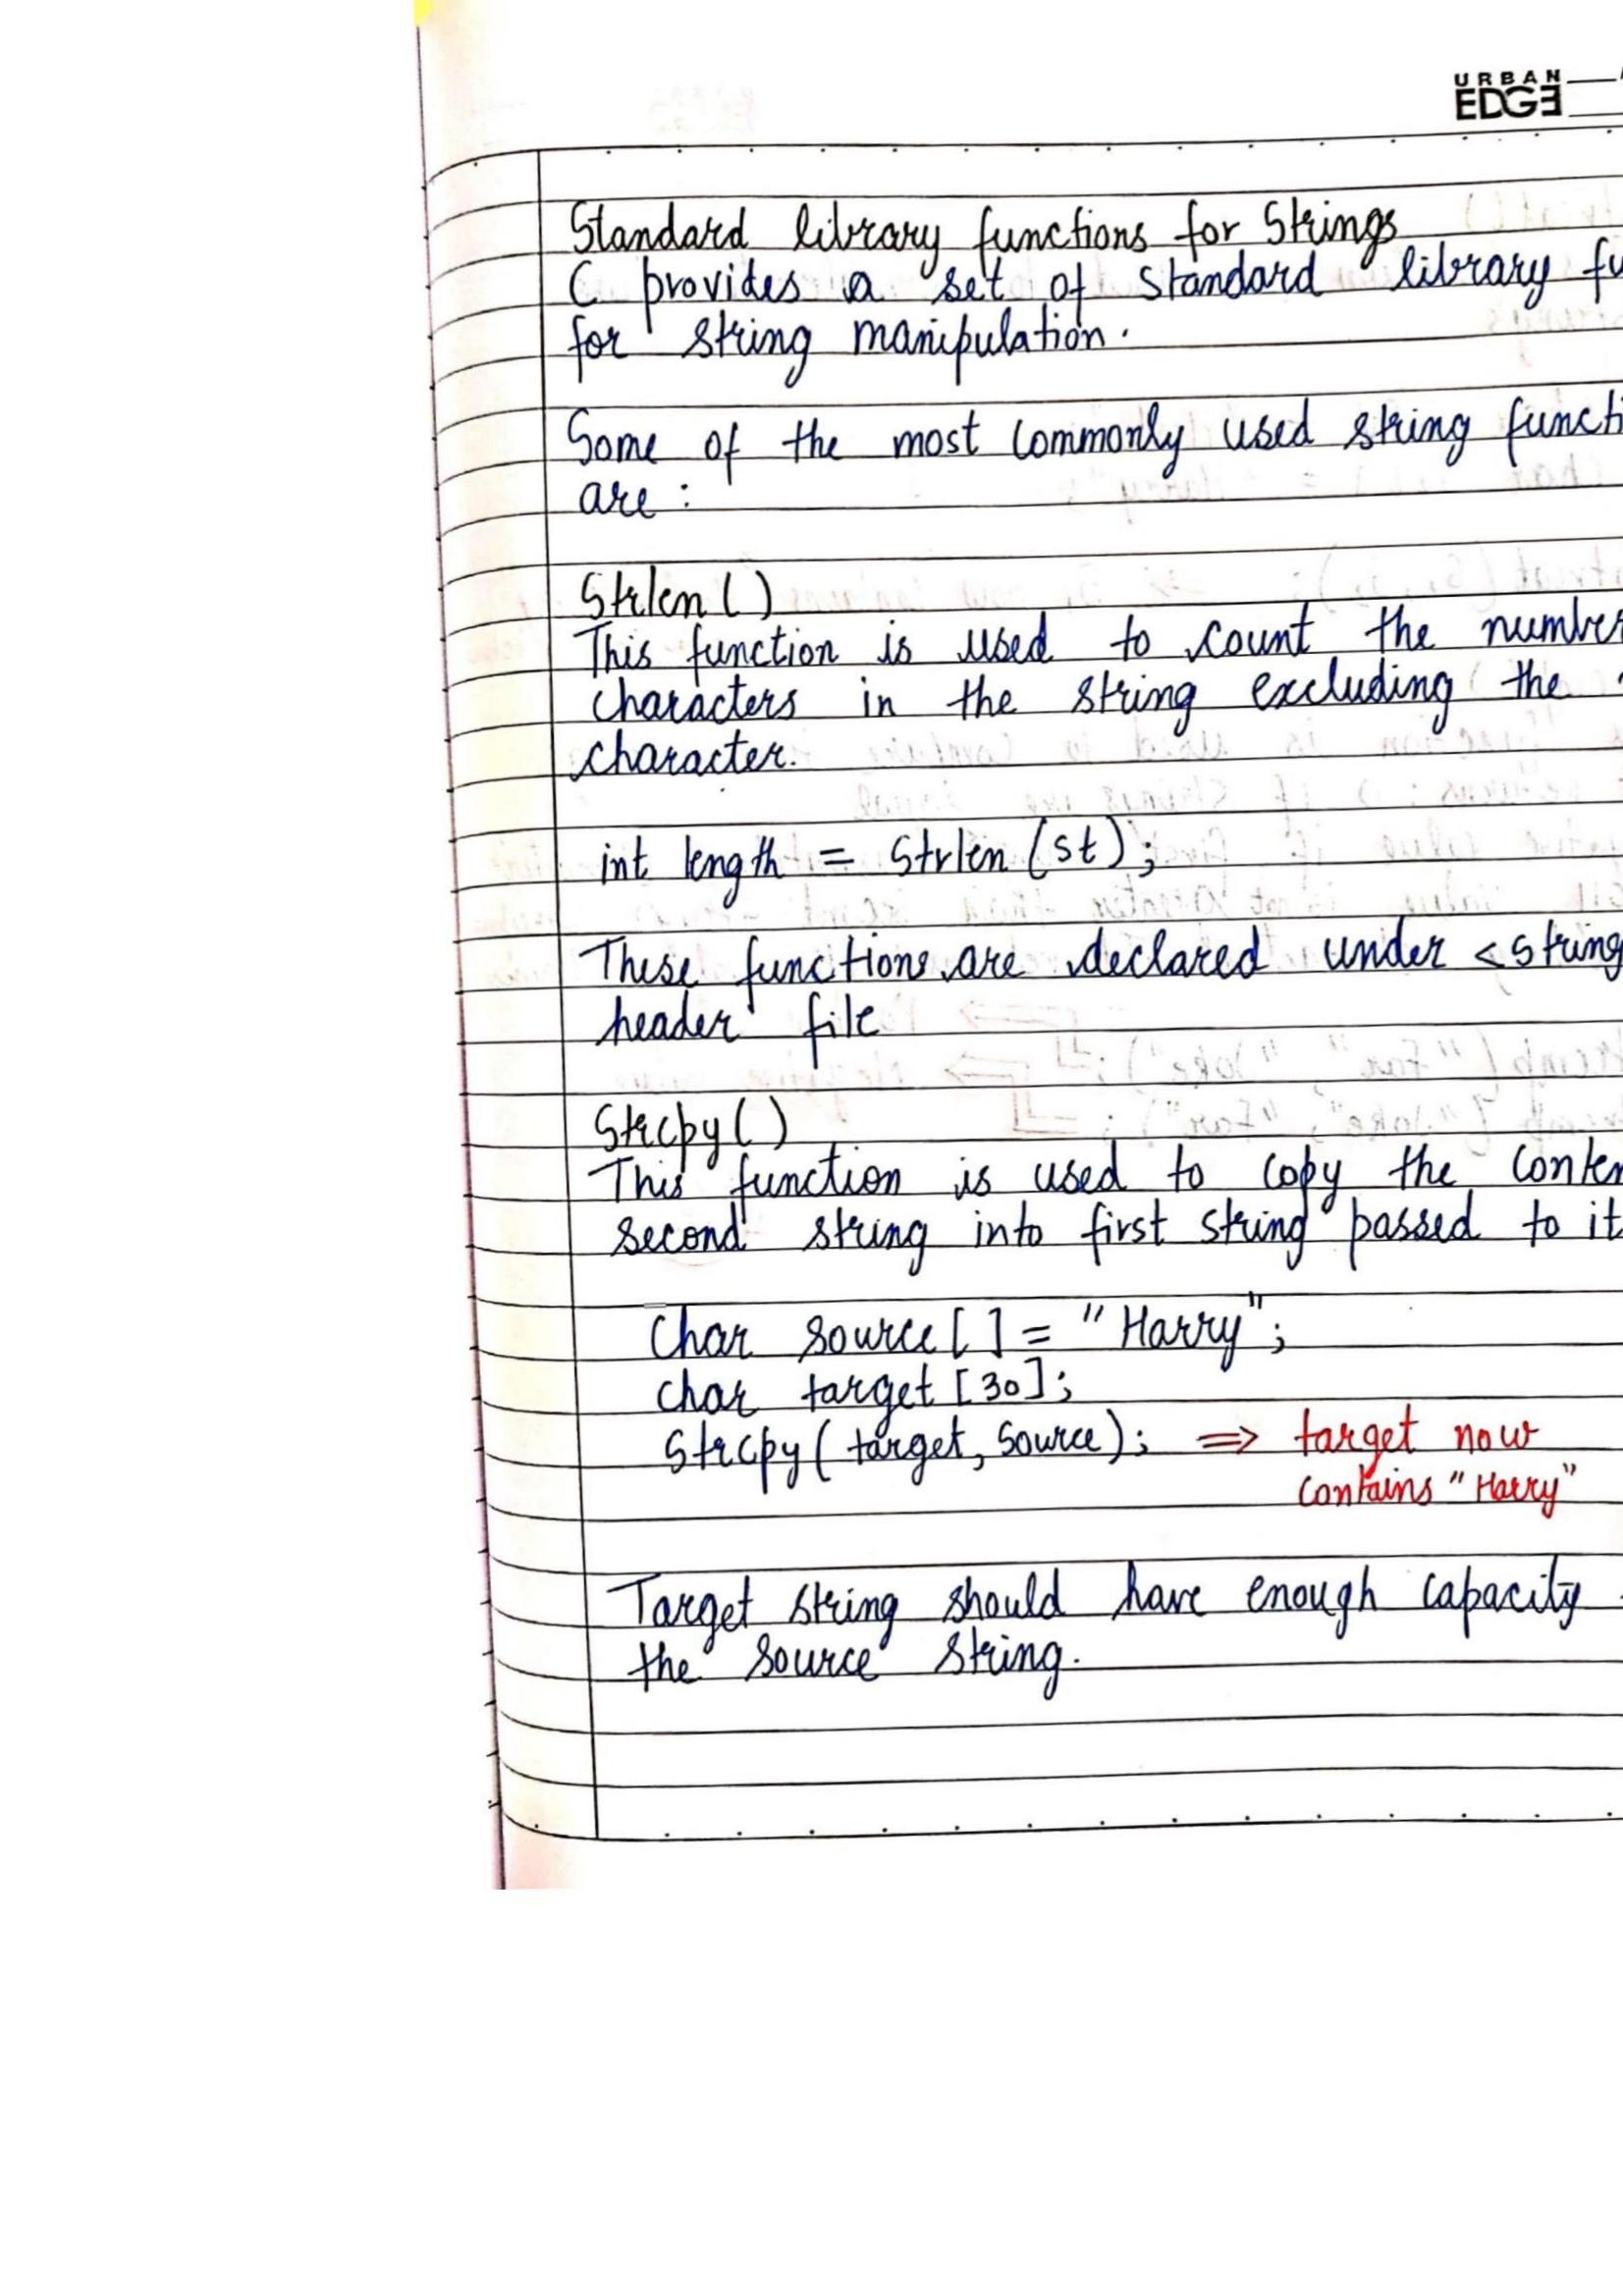 URBAN
EDGE
Standard library functions for Strings
C provides a set of standard library fu
for string manipulation.
Some of the most commonly used string functi
are :
Strlen ( )
This function is used to count the number
characters in the string excluding the
character.
int length = Strlen (st);
These functions are declared under <string
header file
Strcpy ( )
This function is used to copy the conten
second string into first string passed to it
Char source [ ] = "Harry";
char target [30];
Strcpy ( target, Source); ⇒ target now
contains "Harry"
Target string should have enough capacity
the source string.